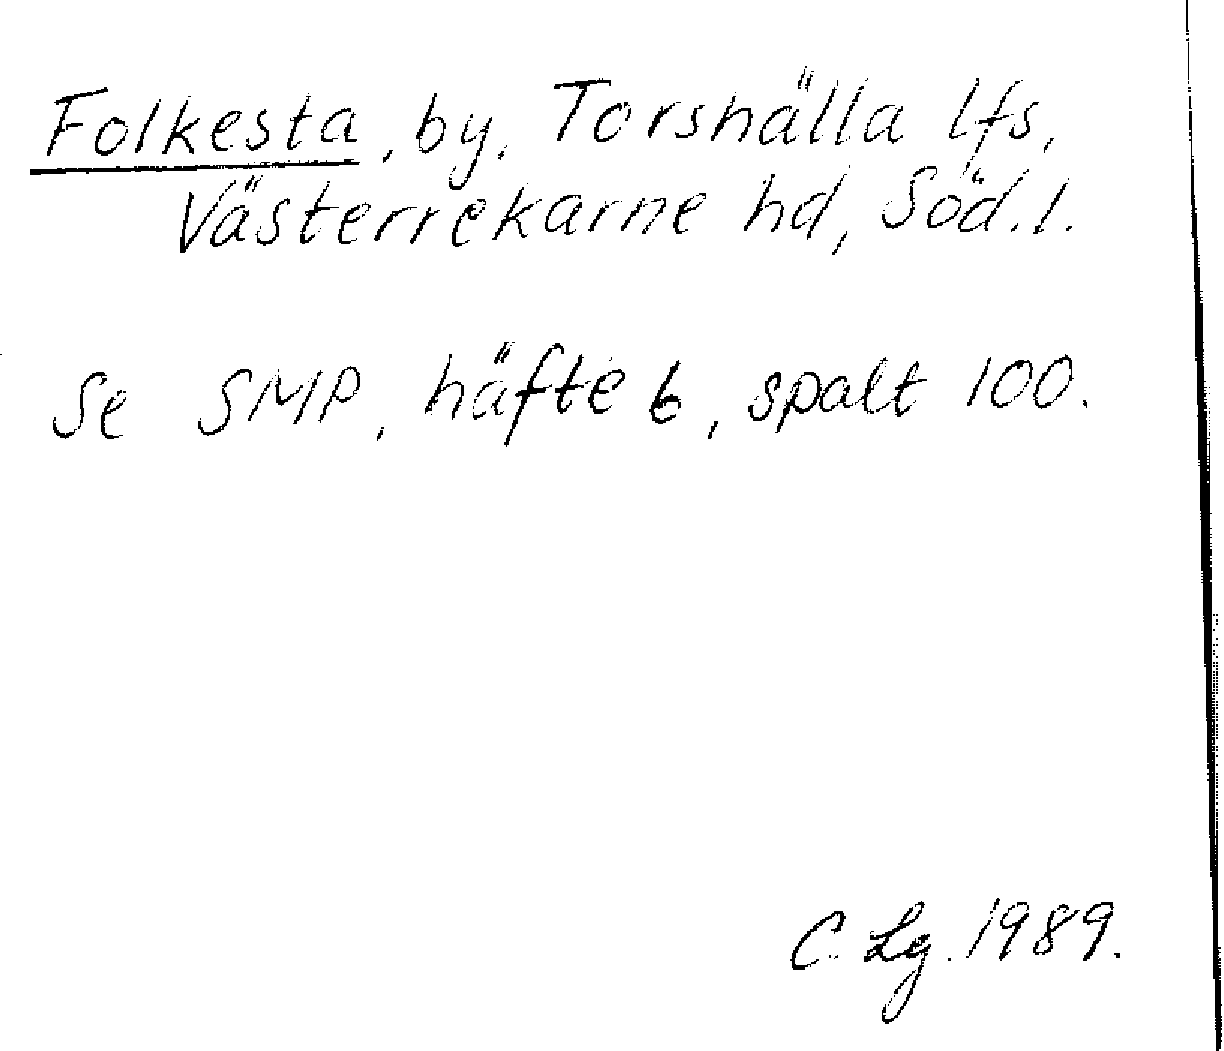 Folkesta, by, Torshälla lfs,
Västerrekarne hd, Söd.l.
Se SMP, häfte 6, spalt 100.
C. Lg. 1989.